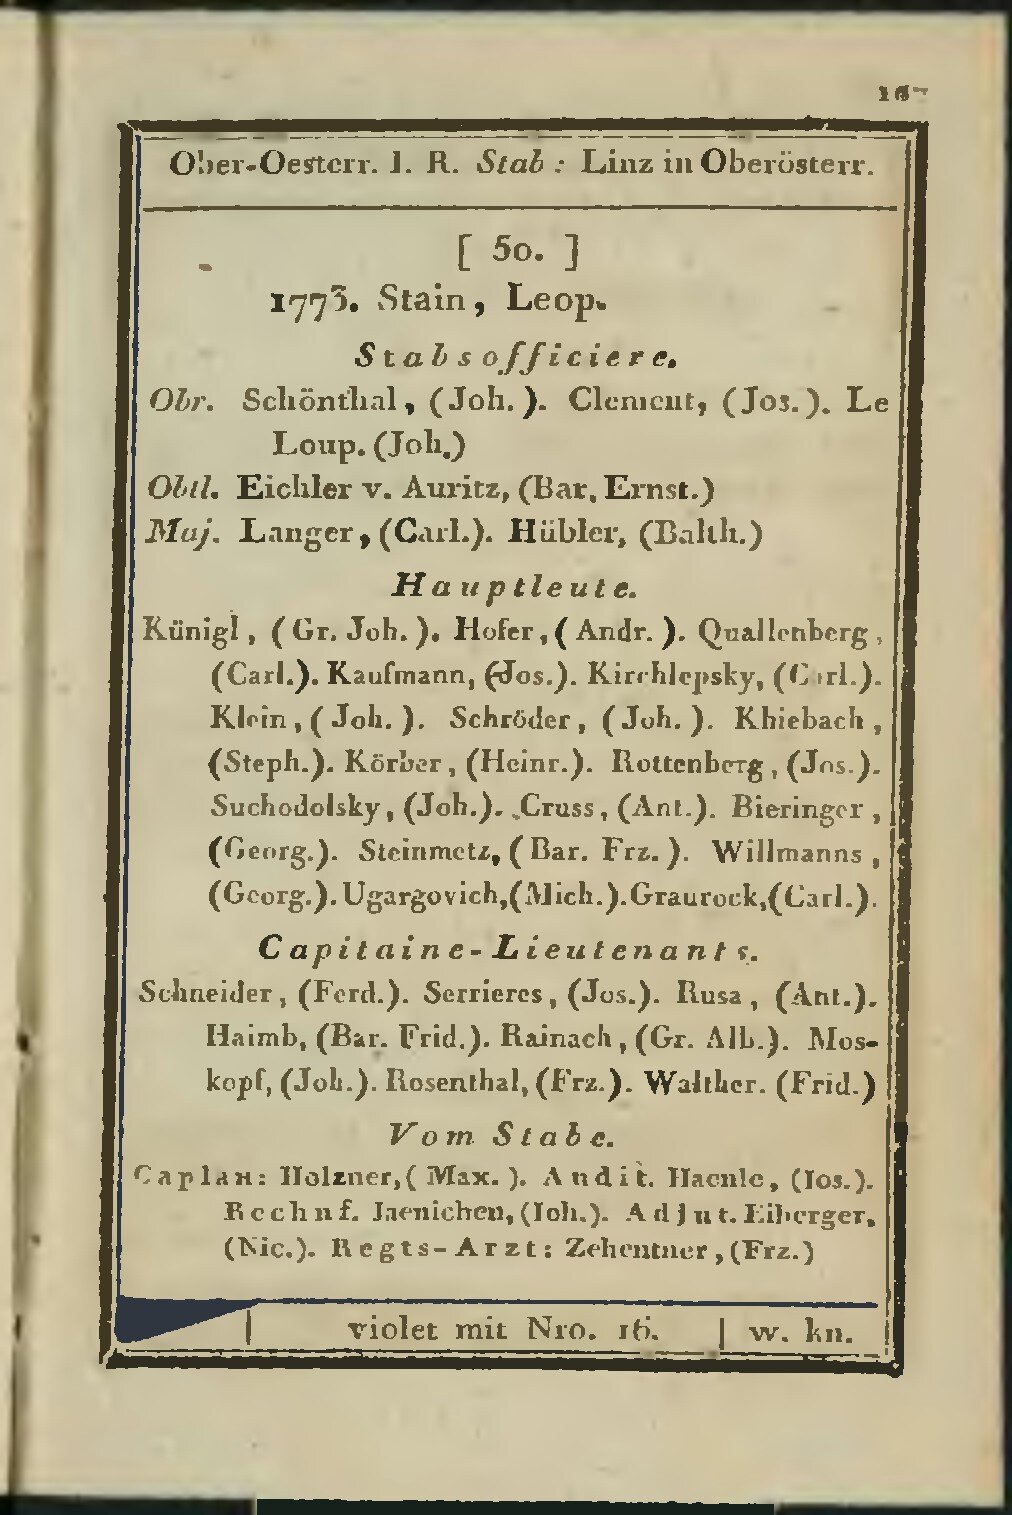 167
Ober-Oesterr. I. R. Stab: Linz in Oberösterr.
[ 50. ]
1773. Stain, Leop.
Stabsofficiere.
Obr. Schönthal, (Joh.). Clement, (Jos.). Le
Loup. (Joh.)
Obtl. Eichler v. Auritz, (Bar. Ernst.)
Maj. Langer, (Carl.). Hübler, (Balth.)
Hauptleute.
Künigl, (Gr. Joh.). Hofer, (Andr.). Quallenberg,
(Carl.). Kaufmann, (Jos.). Kirchlepsky, (Carl.).
Klein, (Joh.). Schröder, (Joh.). Khiebach,
(Steph.). Körber, (Heinr.). Rottenberg, (Jos.).
Suchodolsky, (Joh.). Cruss, (Ant.). Bieringer,
(Georg.). Steinmetz, (Bar. Frz.). Willmanns,
(Georg.). Ugargovich, (Mich.). Graurock, (Carl.).
Capitaine-Lieutenants.
Schneider, (Ferd.). Serrieres, (Jos.). Rusa, (Ant.).
Haimb, (Bar. Frid.). Rainach, (Gr. Alb.). Mos-
kopf, (Joh.). Rosenthal, (Frz.). Walther. (Frid.)
Vom Stabe.
Caplan: Holzner, (Max.). Audit. Haenle, (Ios.).
Rechnf. Jaenichen, (Ioh.). Adjut. Eiberger,
(Nic.). Regts-Arzt: Zehentner, (Frz.)
violet mit Nro. 16. | w. kn.